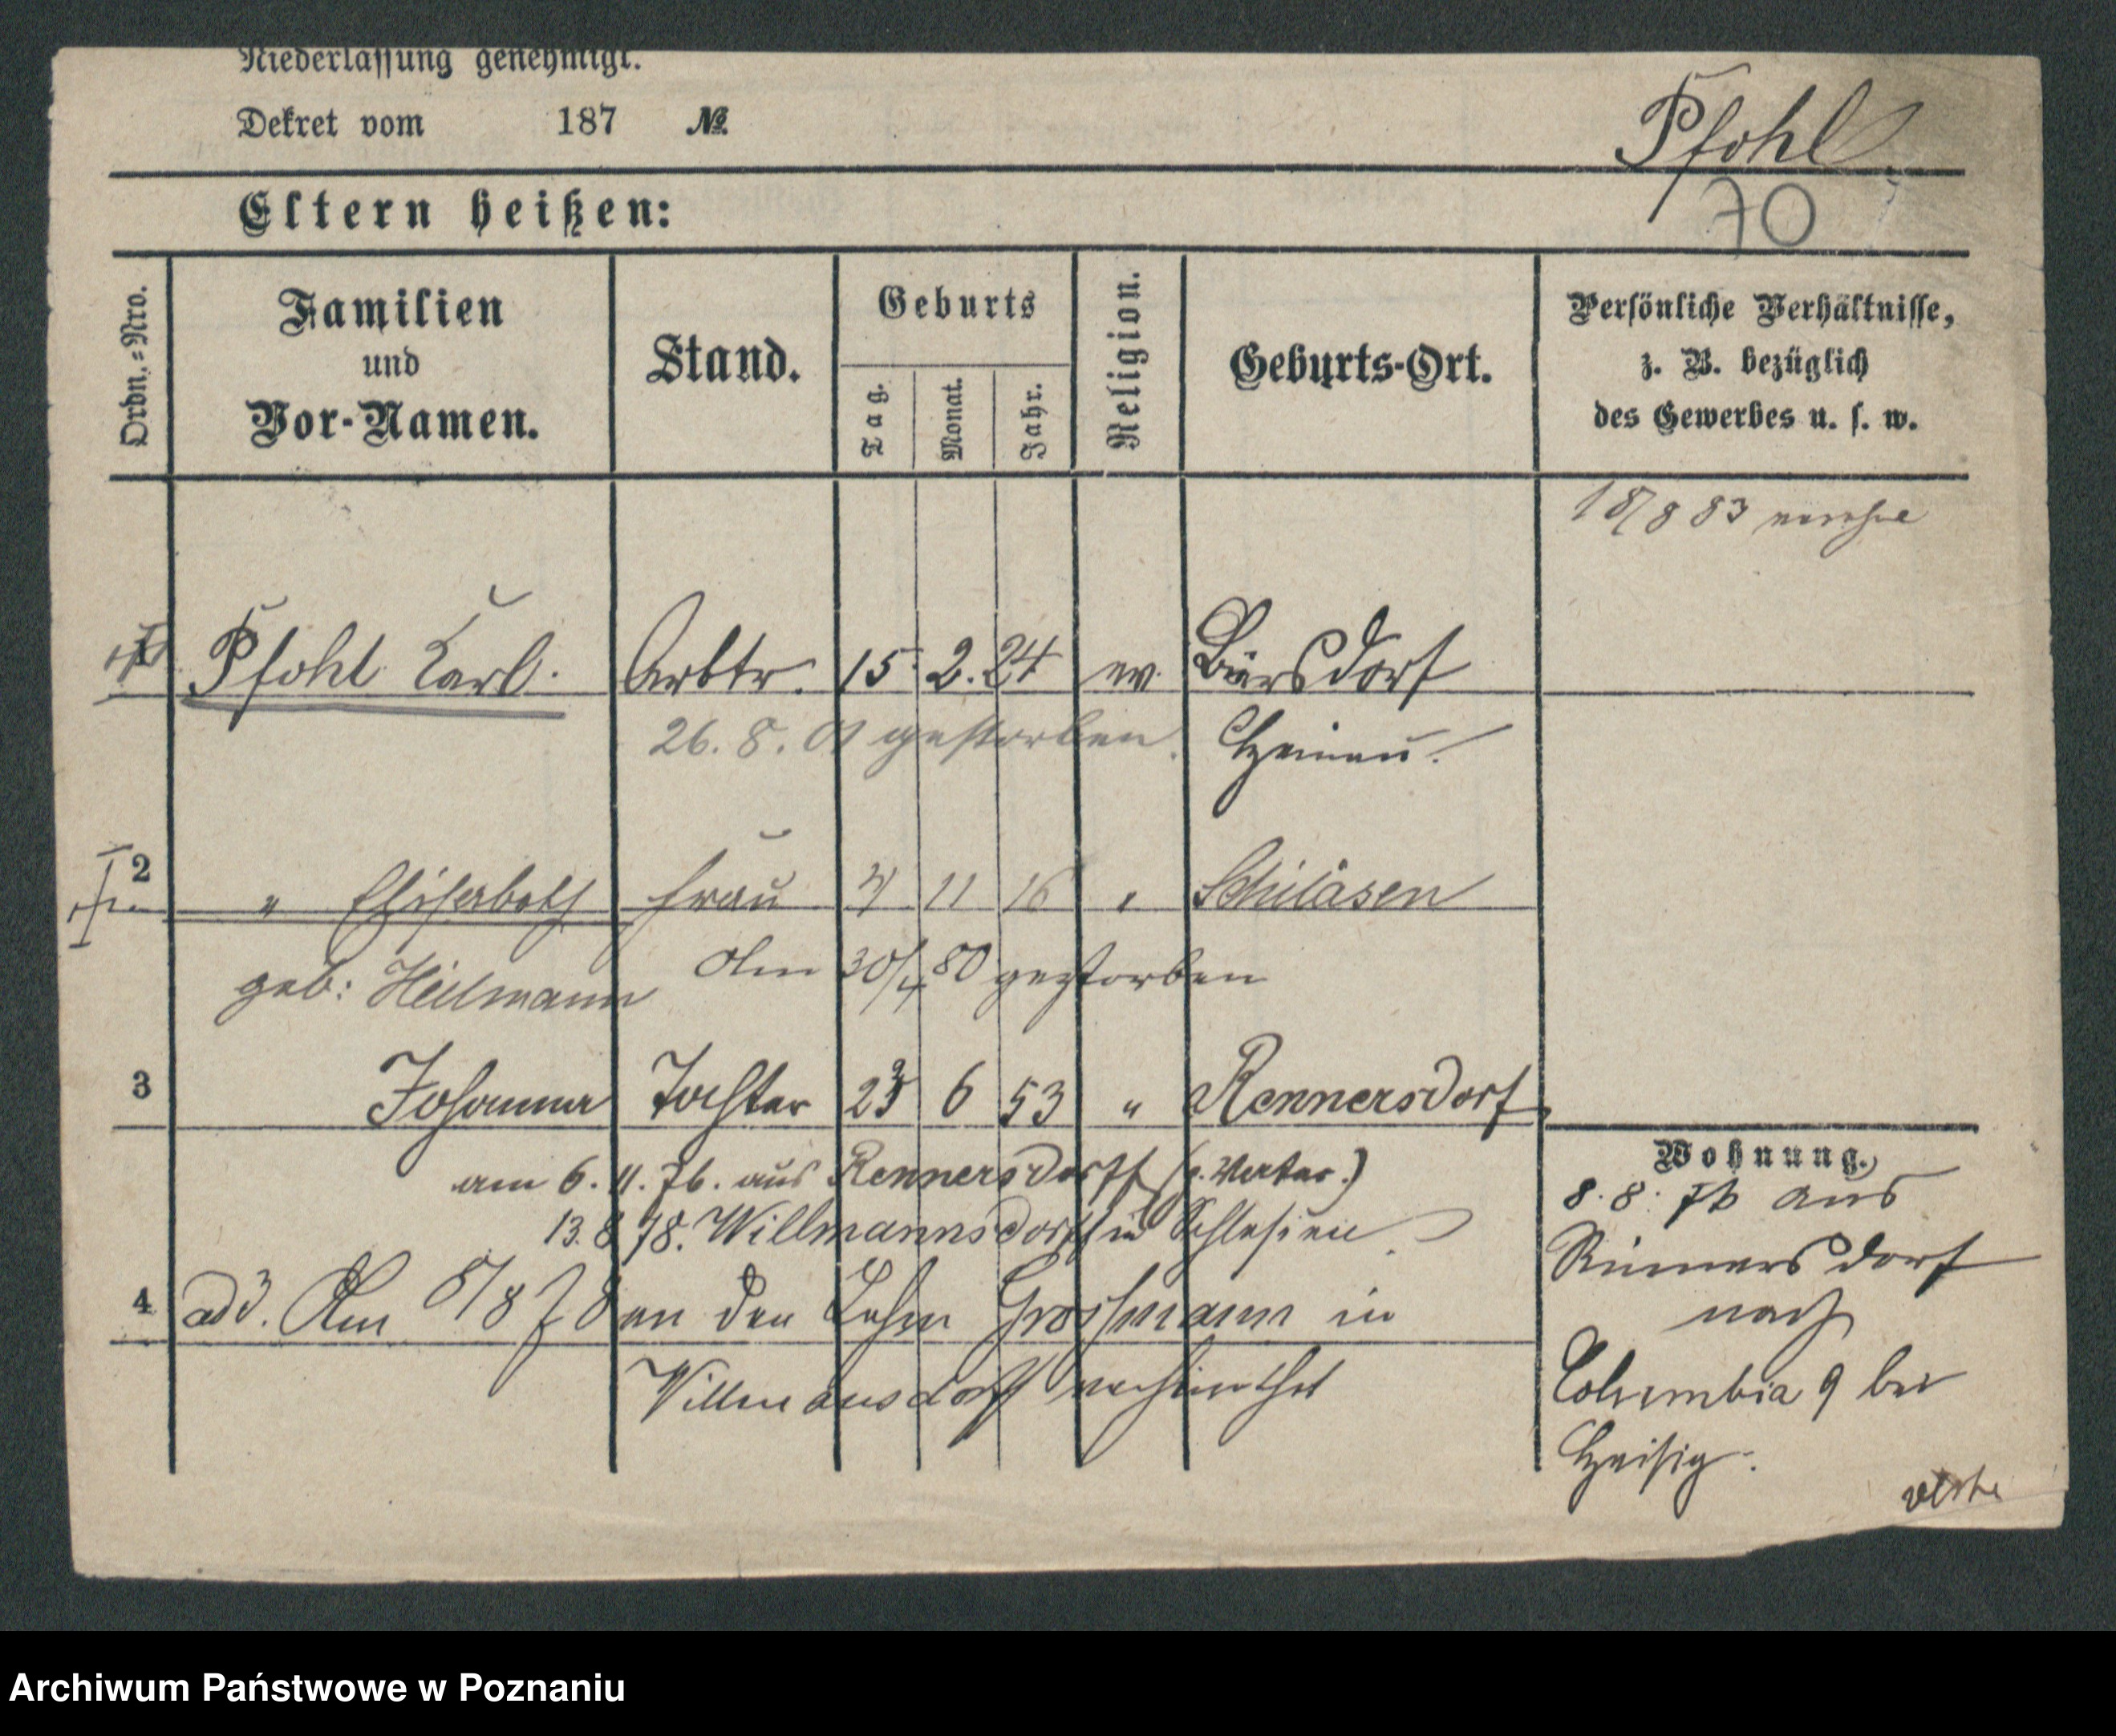 Niederlassung genehmigt.
Dekret vom 187 №
Pfohl
70
Eltern heißen:
Ordn.-Nro.
Familien
und
Vor-Namen.
Stand.
Geburts
Tag.
Monat.
Jahr.
Religion.
Geburts-Ort.
Persönliche Verhältnisse,
z. B. bezüglich
des Gewerbes u. s. w.
18/8 83
1 Pfohl Karl. Arbtr. 15. 2. 24 ev. Bärsdorf
26. 8. 01 gestorben. Hainau.
2 " Elisabeth Frau 11 16 "
geb: Heilmann Am 30/4 80 gestorben
3 Johanna Tochter 23 6 53 " Rennersdorf
am 6. 11. 76. aus Rennersdorff (z. Vater.)
13. 8 78. Willmannsdorff in Schlesien
4 ad 3. Am 5/8 78 an den Grossmann in
Willmansdorff verheirathet
Wohnung.
8. 8. 76 aus
Rennersdorf
nach
Columbia 9 bei
Archiwum Państwowe w Poznaniu